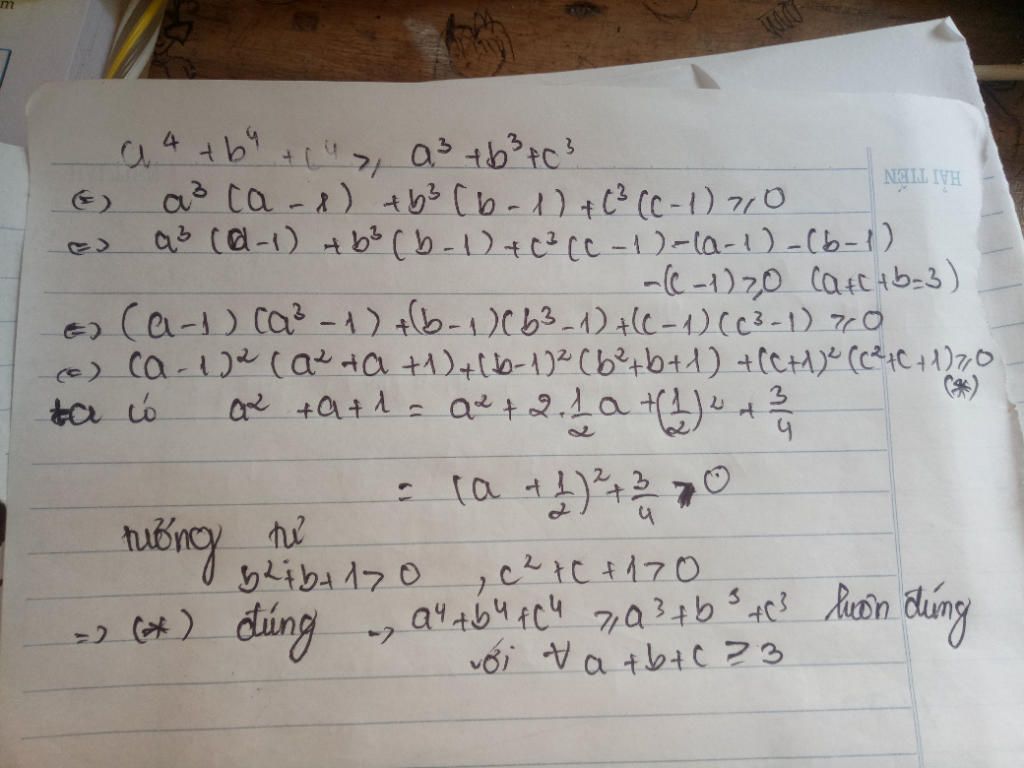 a⁴ + b⁴ + c⁴ ≥ a³ + b³ + c³
⇔ a³ (a - 1) + b³ (b - 1) + c³ (c - 1) ≥ 0
⇔ a³ (a - 1) + b³ (b - 1) + c³ (c - 1) - (a - 1) - (b - 1)
- (c - 1) ≥ 0 (a + c + b = 3)
⇔ (a - 1) (a³ - 1) + (b - 1) (b³ - 1) + (c - 1) (c³ - 1) ≥ 0
⇔ (a - 1)² (a² + a + 1) + (b - 1)² (b² + b + 1) + (c + 1)² (c² + c + 1) ≥ 0
(*)
ta có a² + a + 1 = a² + 2.1/2 a + (1/2)² + 3/4
= (a + 1/2)² + 3/4 > 0
tương tự
b² + b + 1 > 0 , c² + c + 1 > 0
=> (*) đúng -> a⁴ + b⁴ + c⁴ ≥ a³ + b³ + c³ luôn đúng
với ∀ a + b + c ≥ 3
HẢI TIẾN